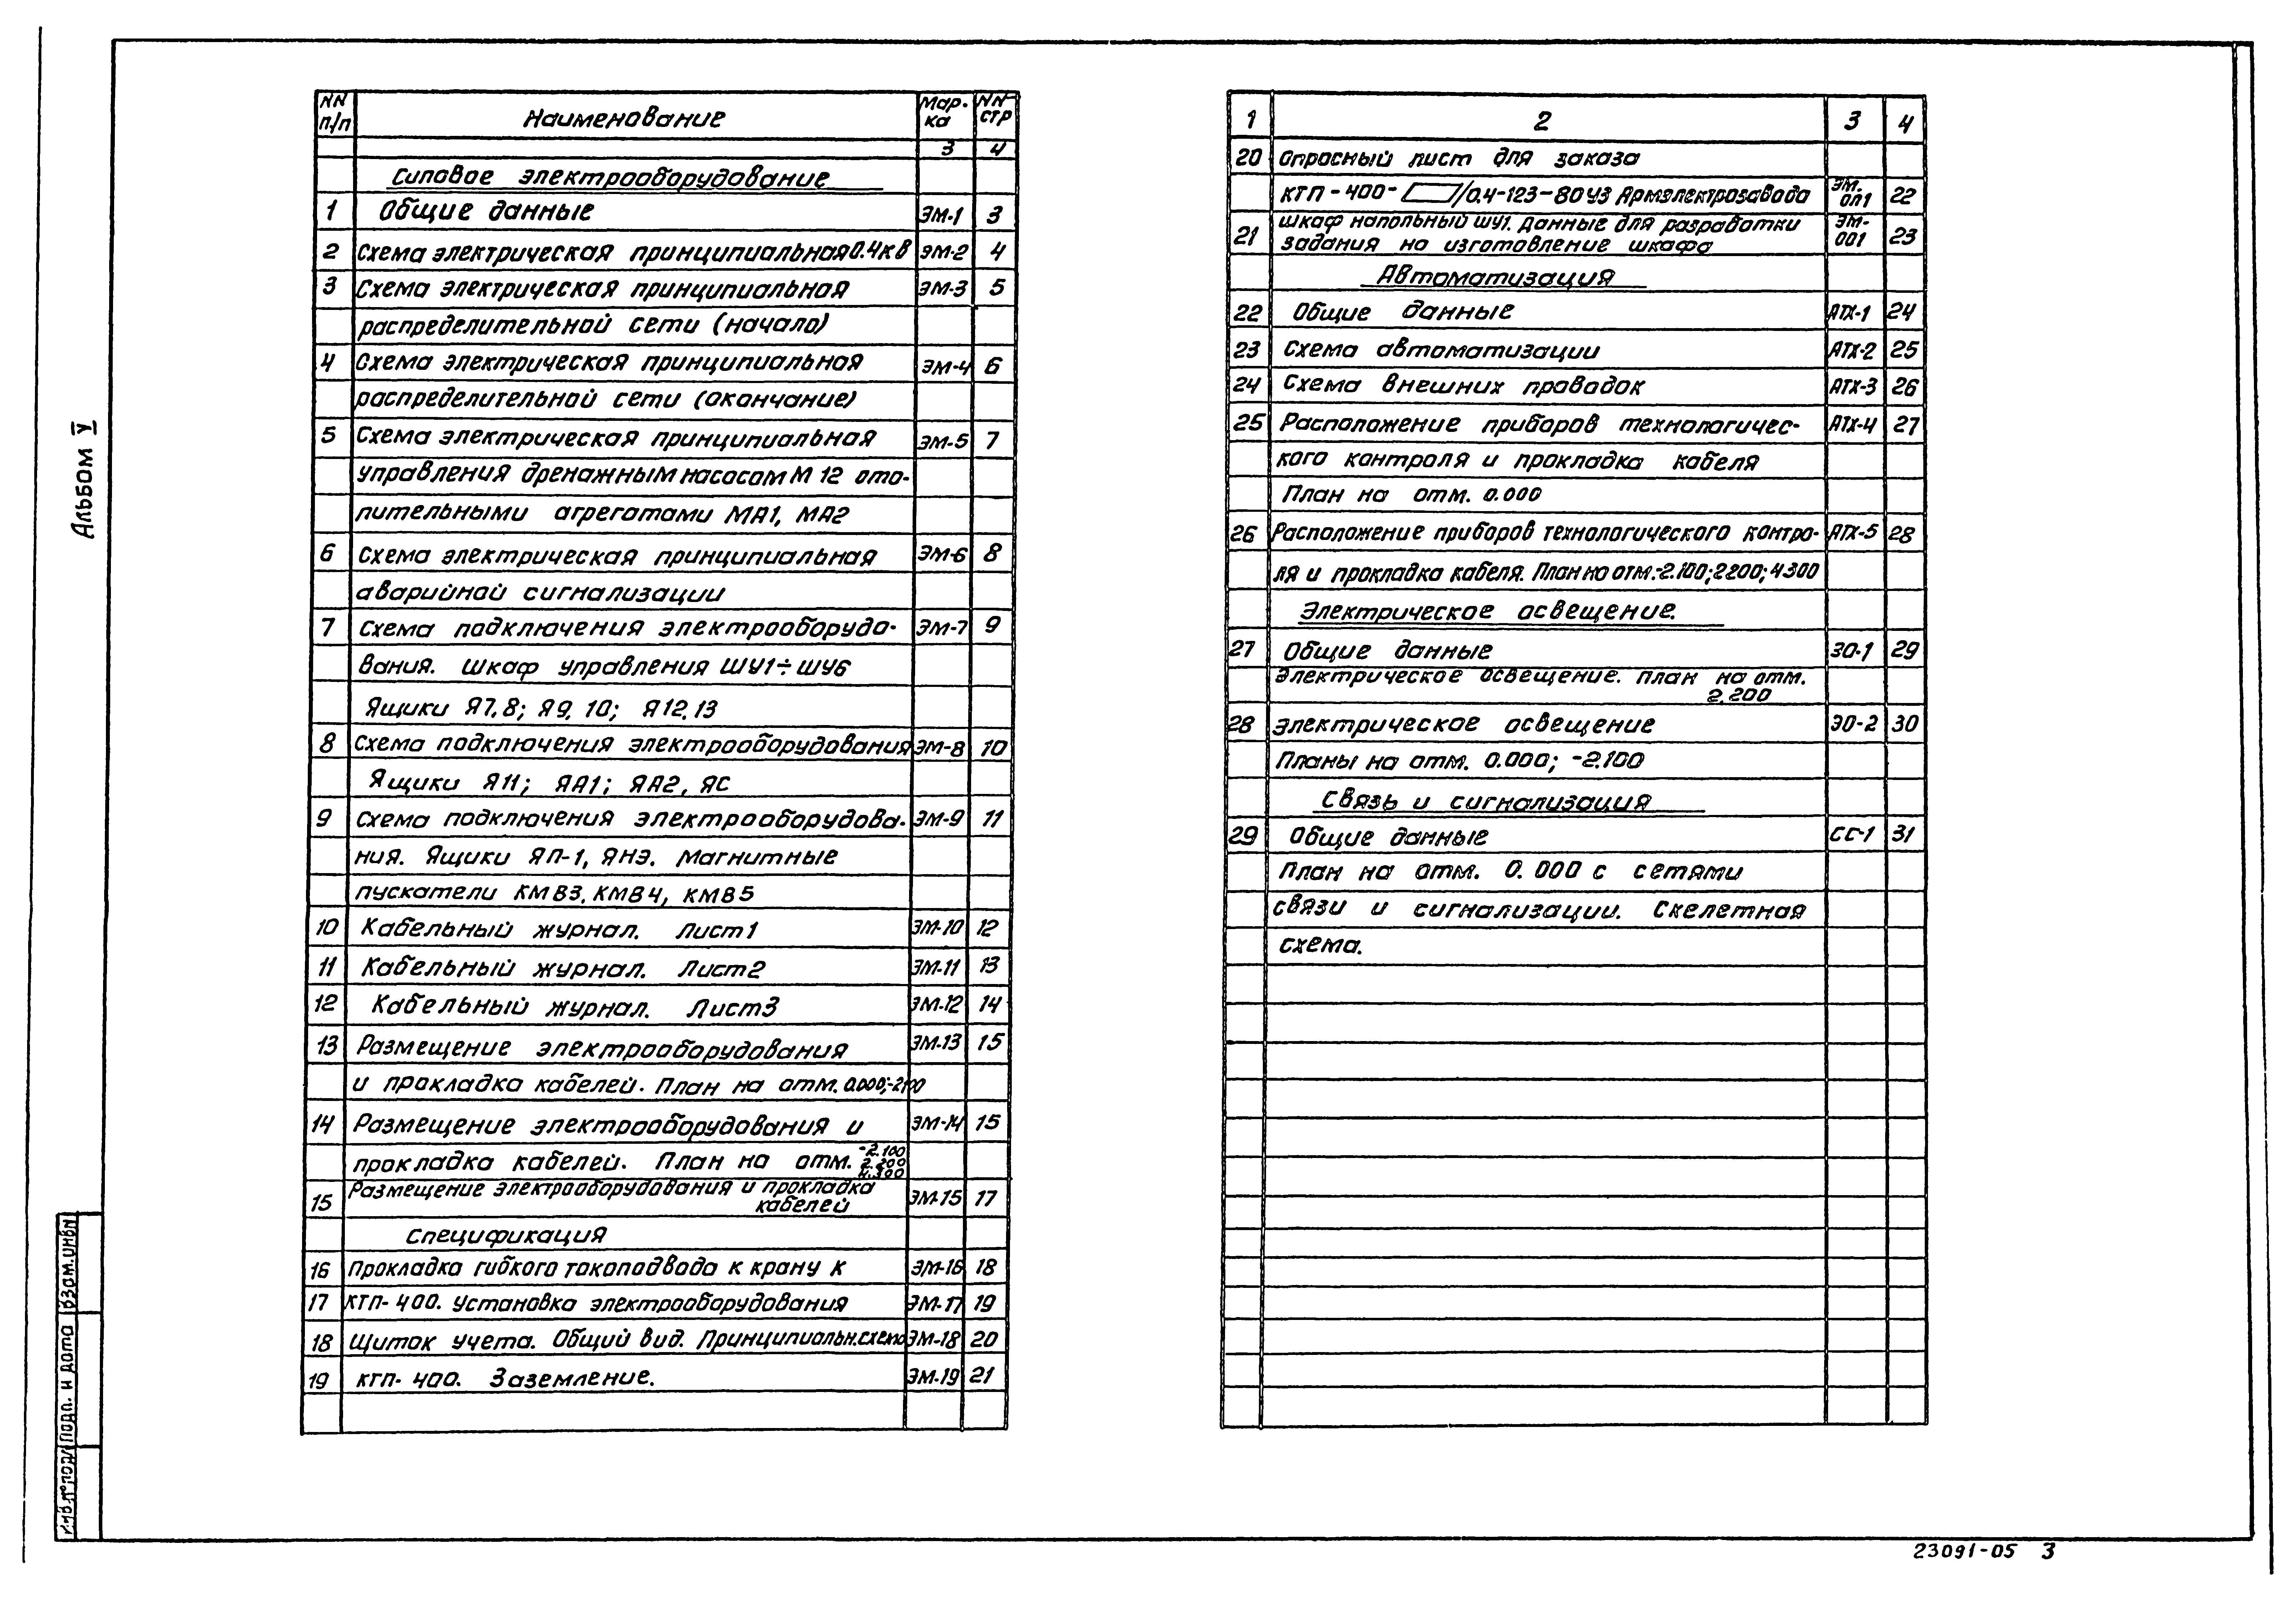 Альбом V
NN п/п Наименование Мар-ка NN стр
3 4
Силовое электрооборудование
1 Общие данные ЭМ-1 3
2 Схема электрическая принципиальная 0.4кВ ЭМ-2 4
3 Схема электрическая принципиальная ЭМ-3 5
распределительной сети (начало)
4 Схема электрическая принципиальная ЭМ-4 6
распределительной сети (окончание)
5 Схема электрическая принципиальная ЭМ-5 7
управления дренажным насосом М 12 ото-
пительными агрегатами МА1, МА2
6 Схема электрическая принципиальная ЭМ-6 8
аварийной сигнализации
7 Схема подключения электрооборудо- ЭМ-7 9
вания. Шкаф управления ШУ1÷ШУ6
Ящики Я7,8; Я9, 10; Я12,13
8 Схема подключения электрооборудования ЭМ-8 10
Ящики Я11; ЯА1; ЯА2, ЯС
9 Схема подключения электрооборудова- ЭМ-9 11
ния. Ящики ЯП-1, ЯНЭ. Магнитные
пускатели КМВ3, КМВ4, КМВ5
10 Кабельный журнал. Лист1 ЭМ-10 12
11 Кабельный журнал. Лист2 ЭМ-11 13
12 Кабельный журнал. Лист3 ЭМ-12 14
13 Размещение электрооборудования ЭМ-13 15
и прокладка кабелей. План на отм. 0.000; -2.100
14 Размещение электрооборудования и ЭМ-14 15
прокладка кабелей. План на отм. -2.100 2.200 4.300
15 Размещение электрооборудования и прокладка ЭМ-15 17
кабелей
Спецификация
16 Прокладка гибкого токоподвода к крану К ЭМ-16 18
17 КТП-400. Установка электрооборудования ЭМ-17 19
18 Щиток учета. Общий вид. Принципиальн.схема ЭМ-18 20
19 КТП-400. Заземление. ЭМ-19 21
1 2 3 4
20 Опросный лист для заказа
КТП-400-▭/0.4-123-80У3 Армэлектрозавода ЭМ.ОЛ1 22
21 Шкаф напольный ШУ1. Данные для разработки ЭМ-001 23
задания на изготовление шкафа
Автоматизация
22 Общие данные АТХ-1 24
23 Схема автоматизации АТХ-2 25
24 Схема внешних проводок АТХ-3 26
25 Расположение приборов технологичес- АТХ-4 27
кого контроля и прокладка кабеля
План на отм. 0.000
26 Расположение приборов технологического контро- АТХ-5 28
ля и прокладка кабеля. План на отм.-2.100; 2200; 4300
Электрическое освещение.
27 Общие данные ЭО-1 29
Электрическое освещение. План на отм.
2.200
28 Электрическое освещение ЭО-2 30
Планы на отм. 0.000; -2.100
Связь и сигнализация
29 Общие данные СС-1 31
План на отм. 0.000 с сетями
связи и сигнализации. Скелетная
схема.
Взам.инв№
Подп. и дата
Инв.№подл
23091-05 3